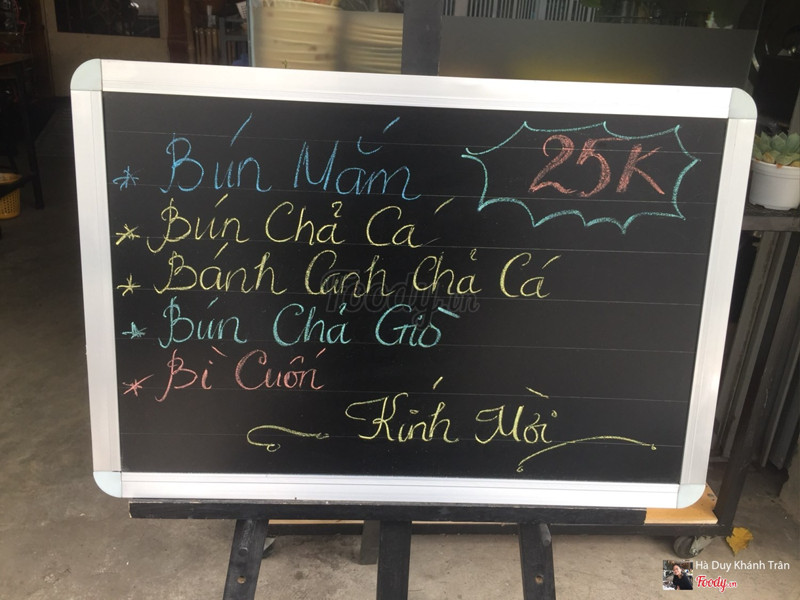 * Bún Mắm
25K
* Bún Chả Cá
* Bánh Canh Chả Cá
* Bún Chả Giò
* Bì Cuốn
Kính Mời
Foody.vn
Hà Duy Khánh Trân
Foody.vn